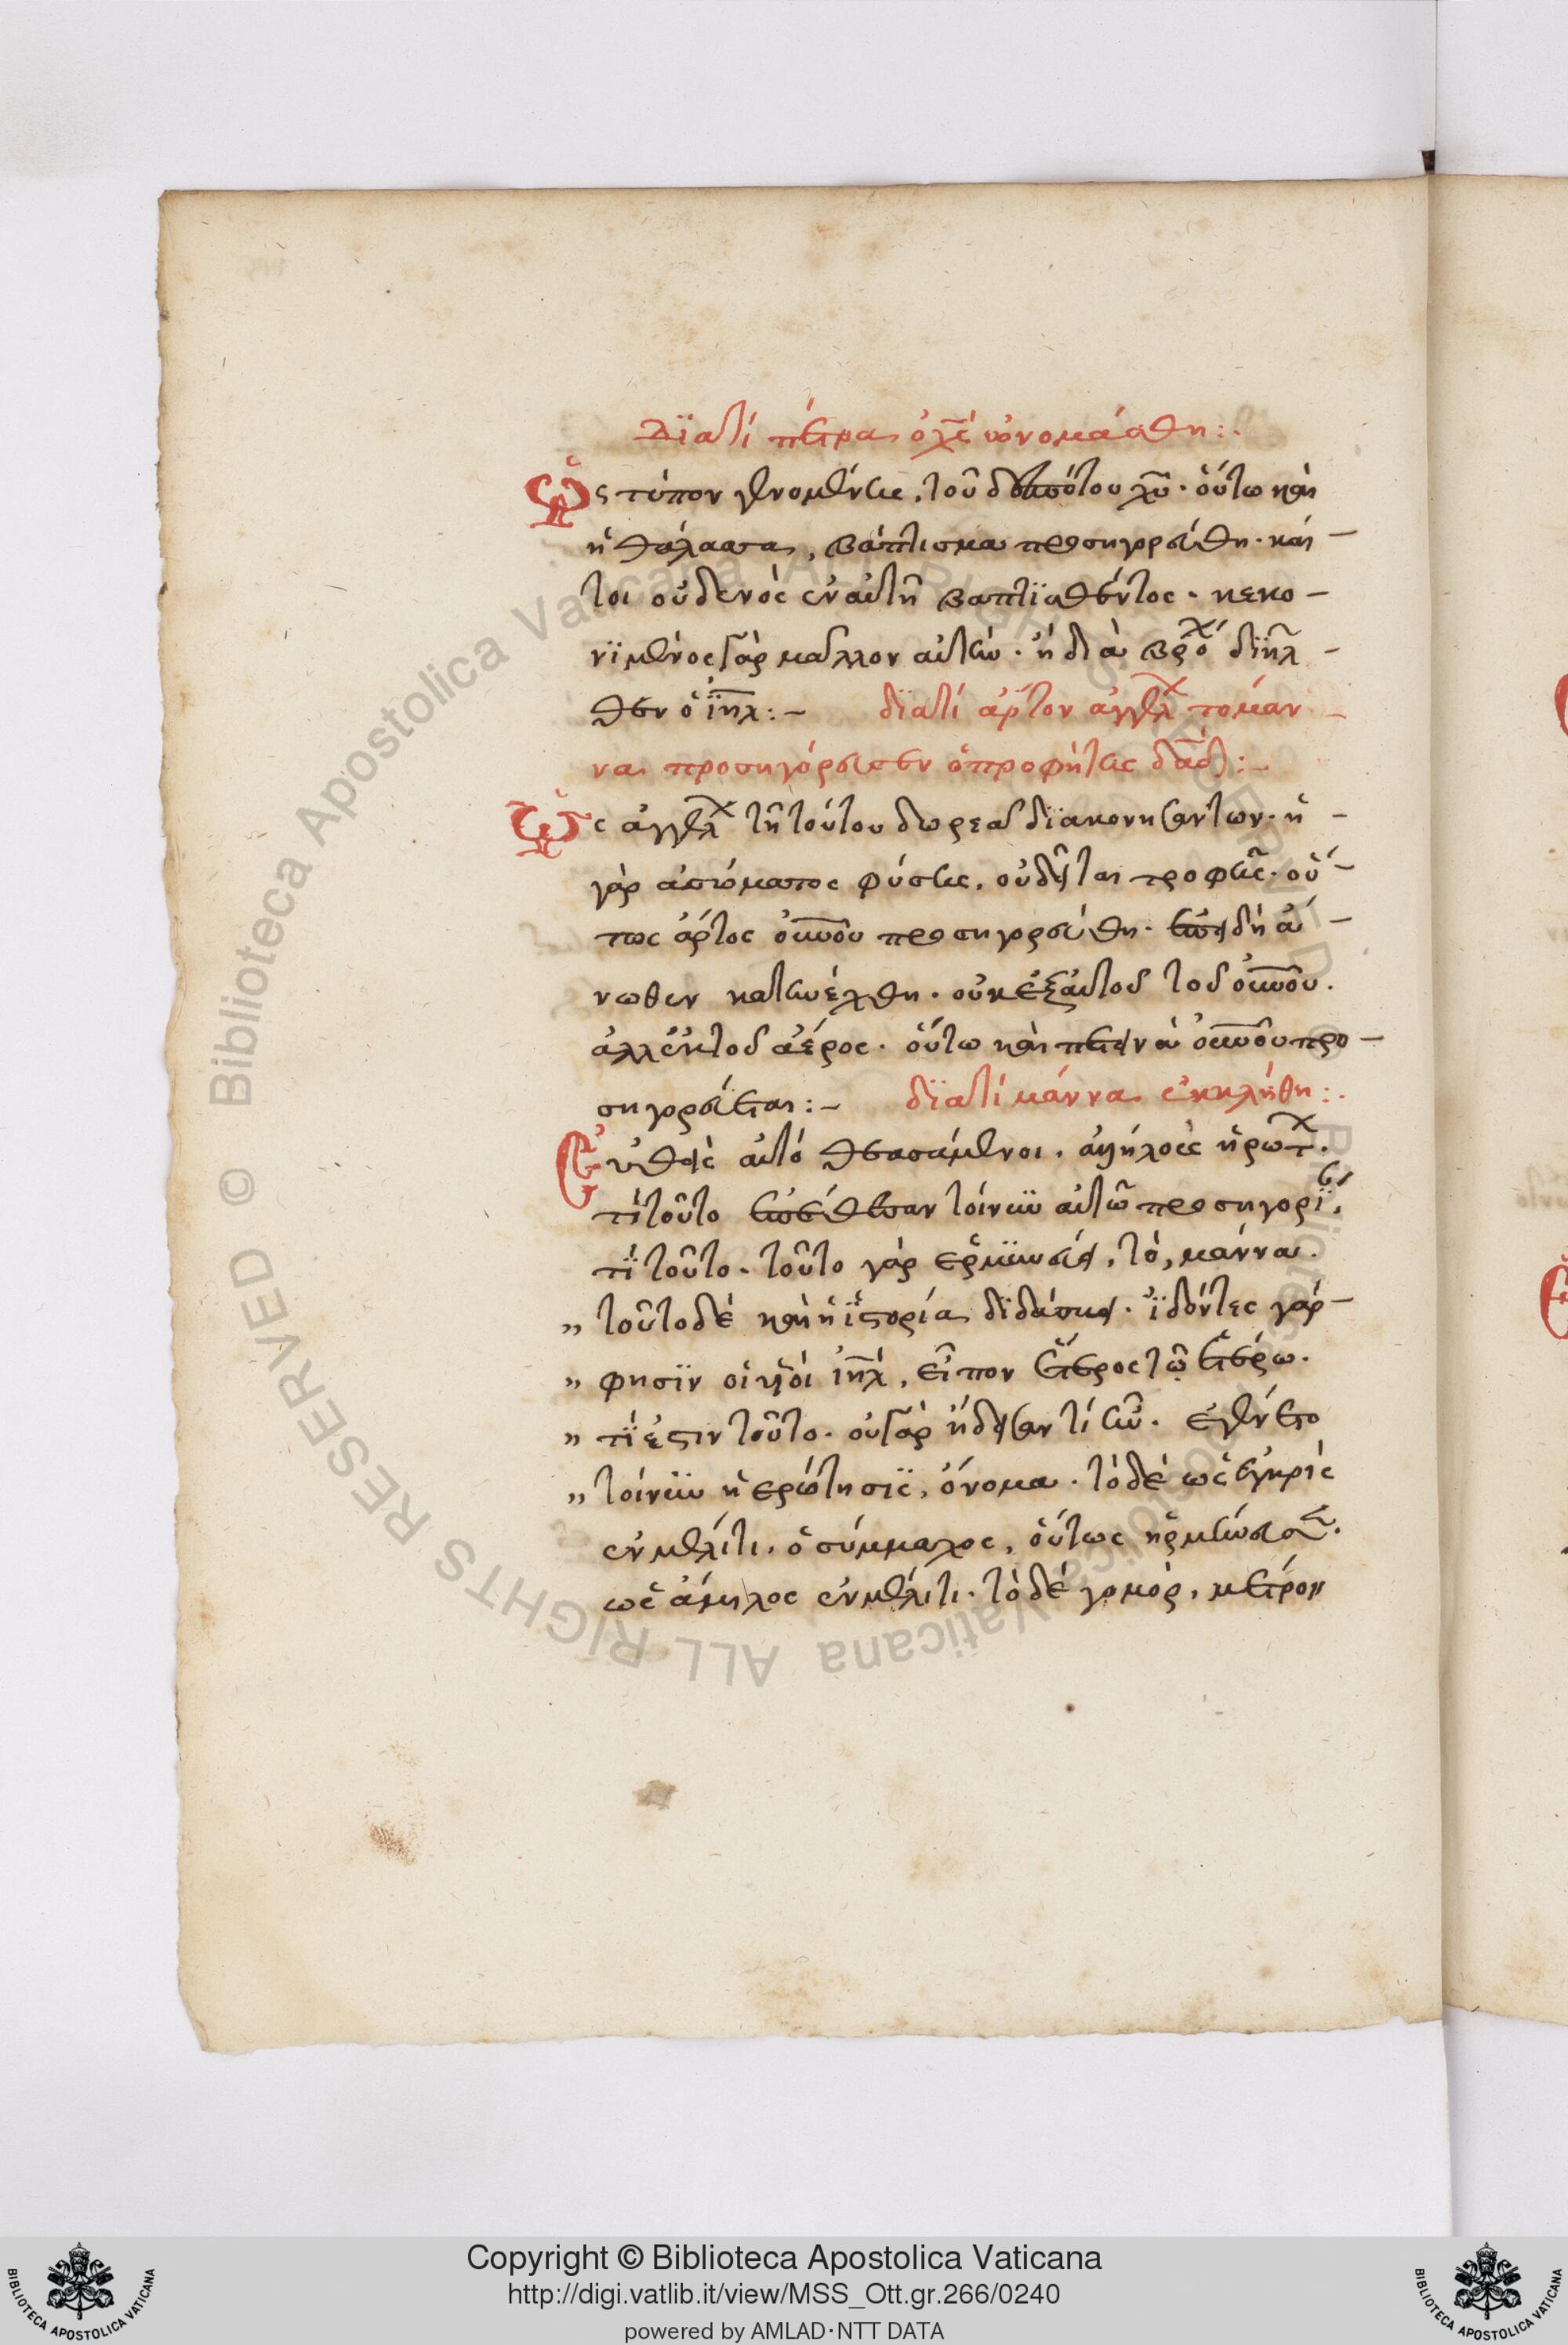 Διατί πέτρα ὁ χς ὠνομάσθη:.
Ὡς τύπον γενομένης, τοῦ δεσπότου χυ· οὕτω καὶ
ἡ θάλασσα, βάπτισμα προσηγορεύθη· καί
τοι οὐδενὸς ἐν αὐτῆ βαπτισθέντος· κεκο
νιμένος γὰρ μᾶλλον αὐτὴν· ἢ διὰ βρο διῆλ
θεν ὁ ιηλ:– διατί ἄρτον ἀγγελ το μάν
να προσηγόρευσεν ὁ προφήτης δαδ:–
Ὡς ἀγγελ τῆ τούτου δωρεᾶ διακονησάντων· ἡ
γὰρ ἀσώματος φύσις, οὐ δεῖται τροφῆς· οὕ
τως ἄρτος οὐνου προσηγορεύθη· ἐπειδὴ ἄ
νωθεν κατηνέχθη· οὐκ ἐξ αὐτοῦ τοῦ οὐνου.
ἀλλ' ἐκ τοῦ ἀέρος· οὕτω καὶ πετεινὰ οὐνου προ
σηγορεύεται:– διατί μάννα ἐκκλήθη:.
Εὐθεὶς αὐτό θεασάμενοι, ἀλλήλοις ἠρώτ.
τί τοῦτο ἐπετέθεισαν τοίνυν αὐτῶ προσηγορί,
τί τοῦτο· τοῦτο γὰρ ἑρμηνεύει, τό, μάννα.
" τοῦτο δὲ καὶ ἡ ἱστορία διδάσκει· ἰδόντες γάρ
" φησϊν οἱ υἱοί ιηλ, εἶπον ἕτερος τῶ ἑτέρω.
" τί ἐστιν τοῦτο· οὐ γὰρ ἤδεισαν τί ἦν· ἐγένετο
" τοίνυν ἡ ἐρώτησις, ὄνομα· τὸ δὲ ὡς ἐγκρὶς
ἐν μέλιτι, ὁ σύμμαχος, οὕτως ἡρμήνευσεν.
ὡς ἄμηλος ἐν μέλιτι· τὸ δὲ γομὸρ, μέτρον
Copyright © Biblioteca Apostolica Vaticana
http://digi.vatlib.it/view/MSS_Ott.gr.266/0240
powered by AMLAD·NTT DATA